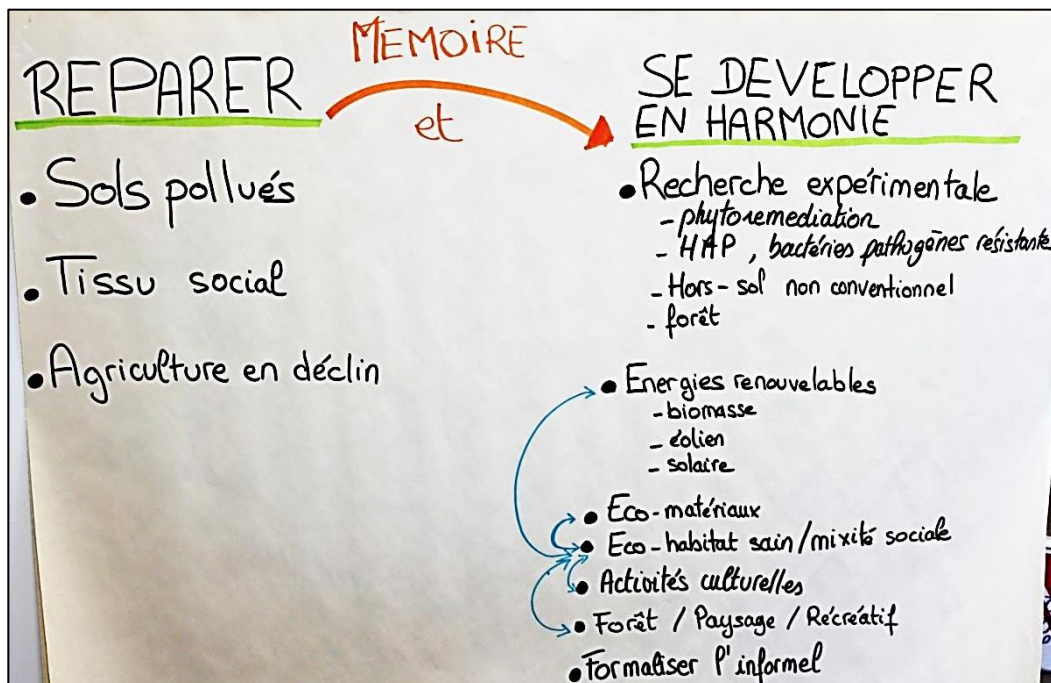 MEMOIRE
et
REPARER
• Sols pollués
• Tissu social
• Agriculture en déclin
SE DEVELOPPER
EN HARMONIE
• Recherche expérimentale
- phytoremediation
- HAP, bactéries pathogènes résistantes
- Hors-sol non conventionnel
- forêt
• Energies renouvelables
- biomasse
- éolien
- solaire
• Eco-matériaux
• Eco-habitat sain/mixité sociale
• Activités culturelles
• Forêt / Paysage / Récréatif
• Formaliser l'informel